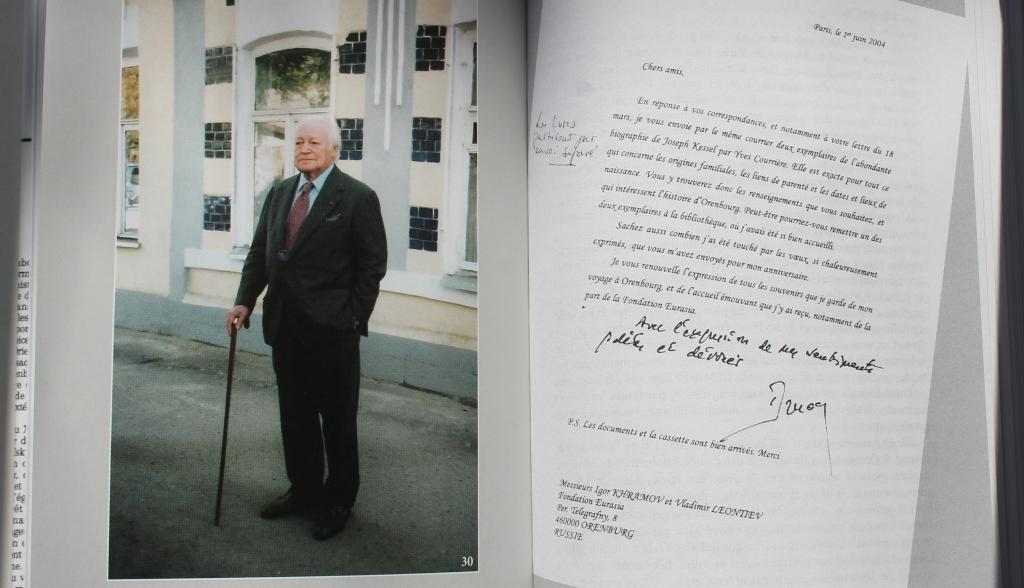 30
Paris, le 1er juin 2004
Chers amis,
En réponse à vos correspondances, et notamment à votre lettre du 18
mars, je vous envoie par le même courrier deux exemplaires de l'abondante
biographie de Joseph Kessel par Yves Courrière. Elle est exacte pour tout ce
qui concerne les origines familiales, les liens de parenté et les dates et lieux de
naissance. Vous y trouverez donc les renseignements que vous souhaitez, et
qui intéressent l'histoire d'Orenbourg. Peut-être pourriez-vous remettre un des
deux exemplaires à la bibliothèque, où j'avais été si bien accueilli.
Sachez aussi combien j'ai été touché par les vœux, si chaleureusement
exprimés, que vous m'avez envoyés pour mon anniversaire.
Je vous renouvelle l'expression de tous les souvenirs que je garde de mon
voyage à Orenbourg, et de l'accueil émouvant que j'y ai reçu, notamment de la
part de la Fondation Eurasia.
Les livres
partiront par
envoi séparé
Avec l'expression de mes sentiments
fidèles et dévoués
P.S. Les documents et la cassette sont bien arrivés. Merci.
Messieurs Igor KHRAMOV et Vladimir LEONTIEV
Fondation Eurasia
Per. Telegrafny, 8
460000 ORENBURG
RUSSIE